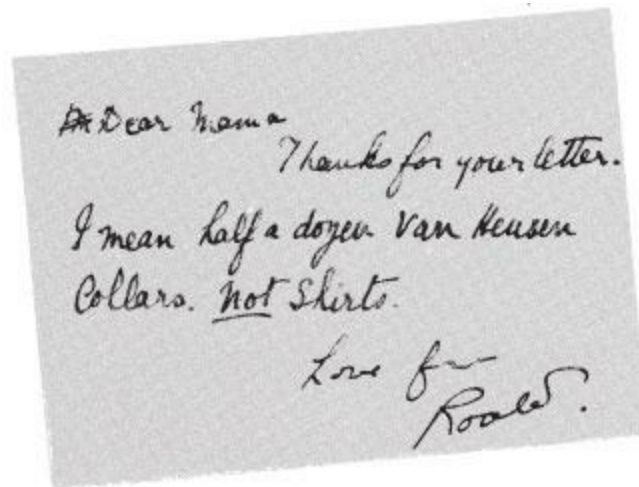 Dear Mama
Thanks for your letter.
I mean half a dozen Van Heusen
Collars. not Shirts.
Love from
Roald.